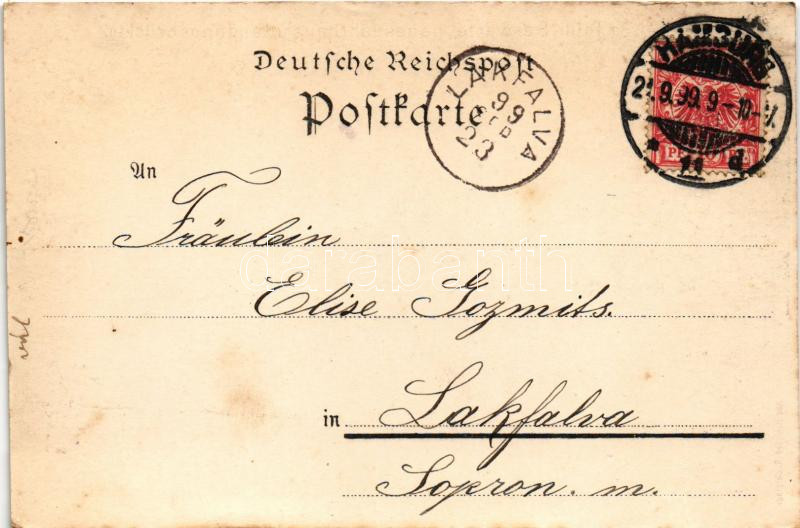 Deutsche Reichspost
Postkarte
HAMBURG
9.99.9-10V.
11 d
LAKFALVA
99
SEP
23
An
Fräulein
Elise Gozmits.
in Lakfalva
Sopron. m.
darabanth